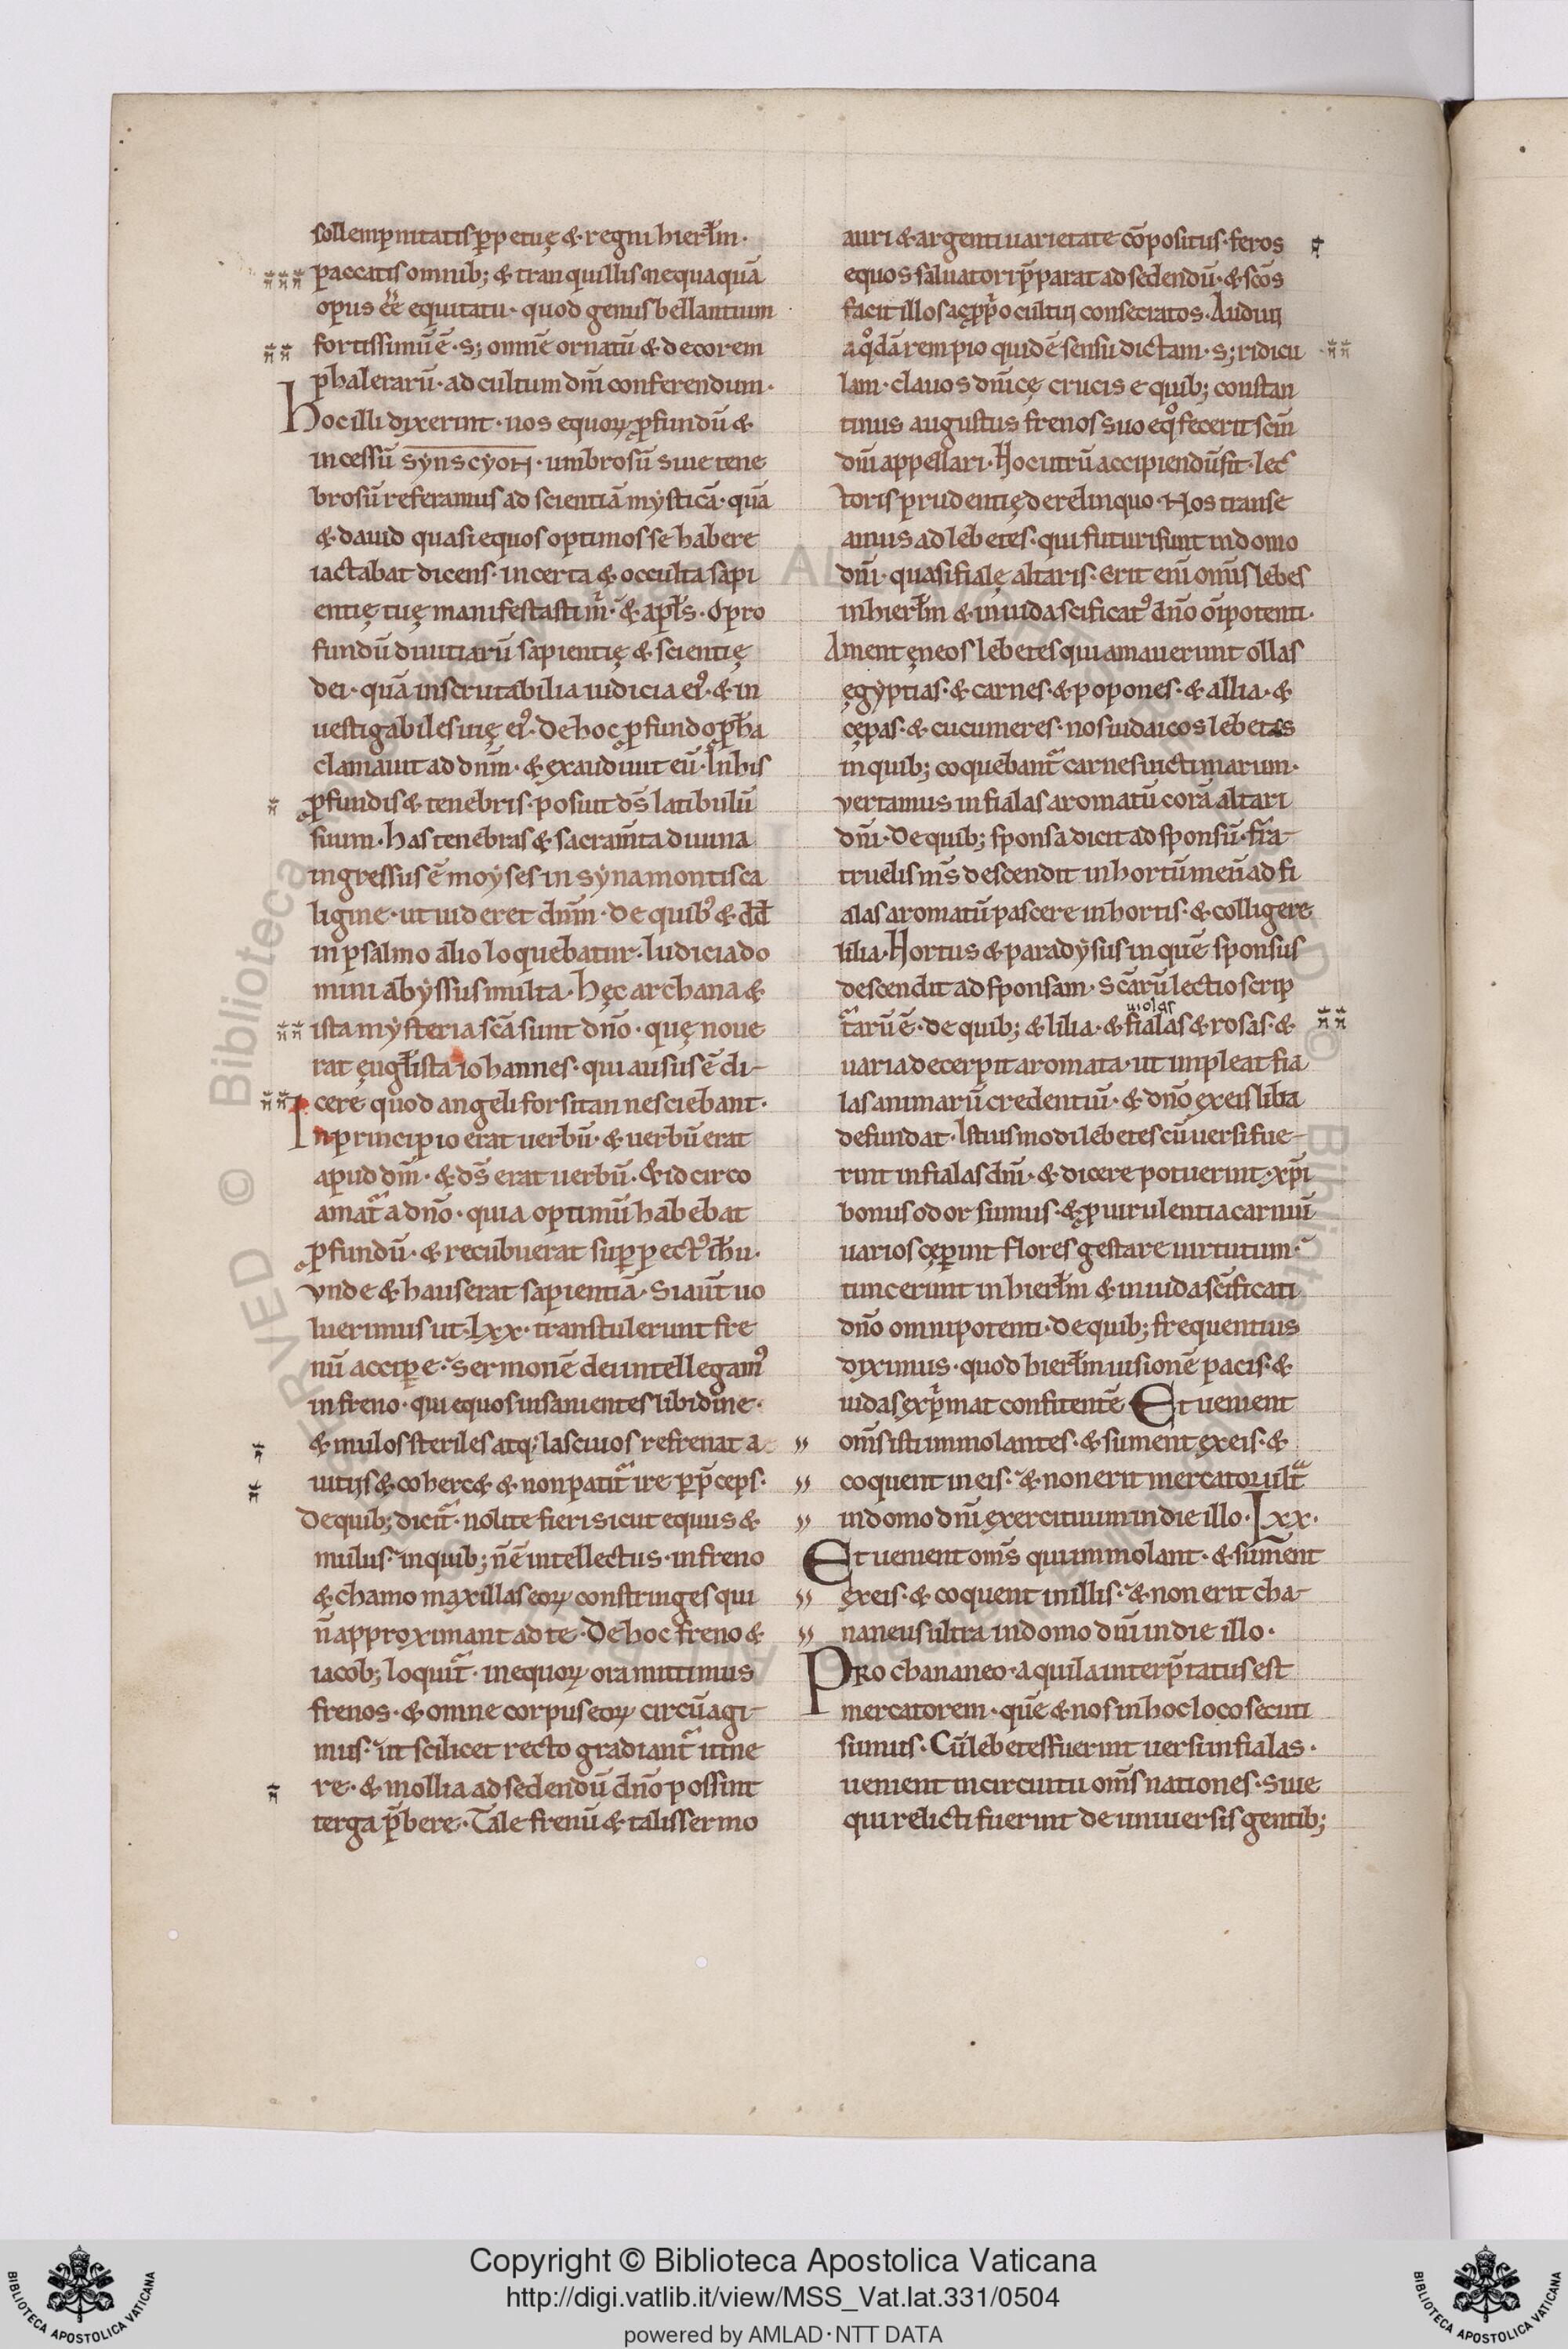 sollempnitatis ꝑpetuę & regni hierłm·
paccatis omnib; & tranquillis nequaquā
opus eē equitatu· quod genus bellantium
fortissimū ē· s; omnē ornatū & decorem
phalerarū· ad cultum dn̄i conferendum·
Hoc illi dixerint· nos equoꝝ ꝓfundū &
incessū synscyon· umbrosū siue tene
brosū referamus ad scientiā mẏsticā· quā
& dauid quasi equos optimos se habere
iactabat dicens· incerta & occulta sapi
entię tuę manifestasti m̄· & apłs· O pro
fundū diuitiarū sapientię & scientię
dei· quā inscrutabilia iudicia eiꝰ· & in
uestigabiles uię eiꝰ· De hoc ꝓfundo ꝓpħa
clamauit ad dnm̄· & exaudiuit eū· In his
ꝓfundis & tenebris· posuit ds̄ latibulū
suum· has tenebras & sacram̄ta diuina
ingressus ē moẏses in sẏna montis ca
ligine· ut uideret dnm̄· de quibꝰ & dd̄
in psalmo alio loquebatur· Iudicia do
mini abẏssus multa· hęc archana &
ista mẏsteria scā sunt dn̄o· quę noue
rat ęugłista iohannes· qui ausus ē di-
cere quod angeli forsitan nesciebant·
In principio erat uerbū· & uerbū erat
apud dm̄· & ds̄ erat uerbū· & idcirco
amat᷑ a dn̄o· quia optimū habebat
ꝓfundū· & recubuerat suꝑ pectꝰ iħu·
vnde & hauserat sapientiā· Si aut̄ uo
luerimus ut· Lxx· transtulerunt fre
nū acciꝑe· sermonē dei intellegamꝰ
in freno· qui equos insanientes libidine·
& mulos steriles atq; lasciuos refrenat a
uitijs & coherc& & non patit᷑ ire ꝑ p̄ceps·
De quib; dicit᷑· nolite fieri sicut equus &
mulus· in quib; n̄ ē intellectus· in freno
& chamo maxillas eoꝝ constringes qui
n̄ approximant ad te· De hoc freno &
iacob; loquit᷑· in equoꝝ ora mittimus
frenos· & omne corpus eoꝝ circūagi-
mus· ut scilicet recto gradiant᷑ itine
re· & mollia ad sedendū dn̄o possint
terga p̄bere· Tale frenū & talis sermo
auri & argenti uarietate cōpositus· feros
equos saluatori p̄parat ad sedendū· & scōs
facit illos ac ꝓprio cultui consecratos· Audiui
a qͦdā rem pio quidē sensu dictam· s; ridicu
lam· clauos dn̄icę crucis e quib; constan
tinus augustus frenos suo eqͦ fecerit scm̄
dn̄i appellari· Hoc utrū accipiendū sit· lec
toris prudentię derelinquo· Nos transe
amus ad lebetes· qui futuri sunt in domo
dn̄i· quasi fialę altaris· Erit eni̅ omi̅s lebes
in hierłm & in iuda scificatꝰ dn̄o oi̅potenti·
Ament ęneos lebetes qui amauerunt ollas
ęgẏptias· & carnes· & popones· & allia· &
cępas· & cucumeres· nos iudaicos lebetes
in quib; coquebant᷑ carnes uictimarum·
vertamus in fialas aromatū corā altari
dn̄i· De quib; sponsa dicit ad sponsū· fra-
truelis ms̄ descendit in hortū meū ad fi
alas aromatū pascere in hortis· & colligere
lilia· Hortus & paradẏsus in quē sponsus
descendit ad sponsam· scārū lectio scrip
uiolas
t᷑arū ē· de quib; & lilia· & fialas & rosas· &
uaria decerpit aromata· ut impleat fia
las animarū credentiū· & dn̄o ex eis liba
defundat· Istiusmodi lebetes cū uersi fue-
rint in fialas dn̄i· & dicere potuerint· xp̄i
bonus odor sumus· & ꝓ uirulentia carniū
uarios cęꝑint flores gestare uirtutum·
tunc erunt in hierłm & in iuda scificati
dn̄o omnipotenti· De quib; frequentius
diximus· quod hierłm uisionē pacis· &
iudas exp̄mat confitentē Et uenient
om̄s isti immolantes· & sument ex eis· &
coquent in eis· & non erit mercator ult᷑
in domo dn̄i exercituum in die illo· Lxx·
Et uenient om̄s qui immolant· & sument
ex eis· & coquent in illis· & non erit cha-
naneus ultra in domo dn̄i in die illo·
Pro chananeo· aquila interp̄tatus est
mercatorem· quē & nos in hoc loco secuti
sumus· Cū lebetes fuerint uersi in fialas·
uenient in circuitu om̄s nationes· siue
qui relicti fuerint de uniuersis gentib;
Copyright © Biblioteca Apostolica Vaticana
http://digi.vatlib.it/view/MSS_Vat.lat.331/0504
powered by AMLAD·NTT DATA
BIBLIOTECA APOSTOLICA VATICANA
BIBLIOTECA APOSTOLICA VATICANA